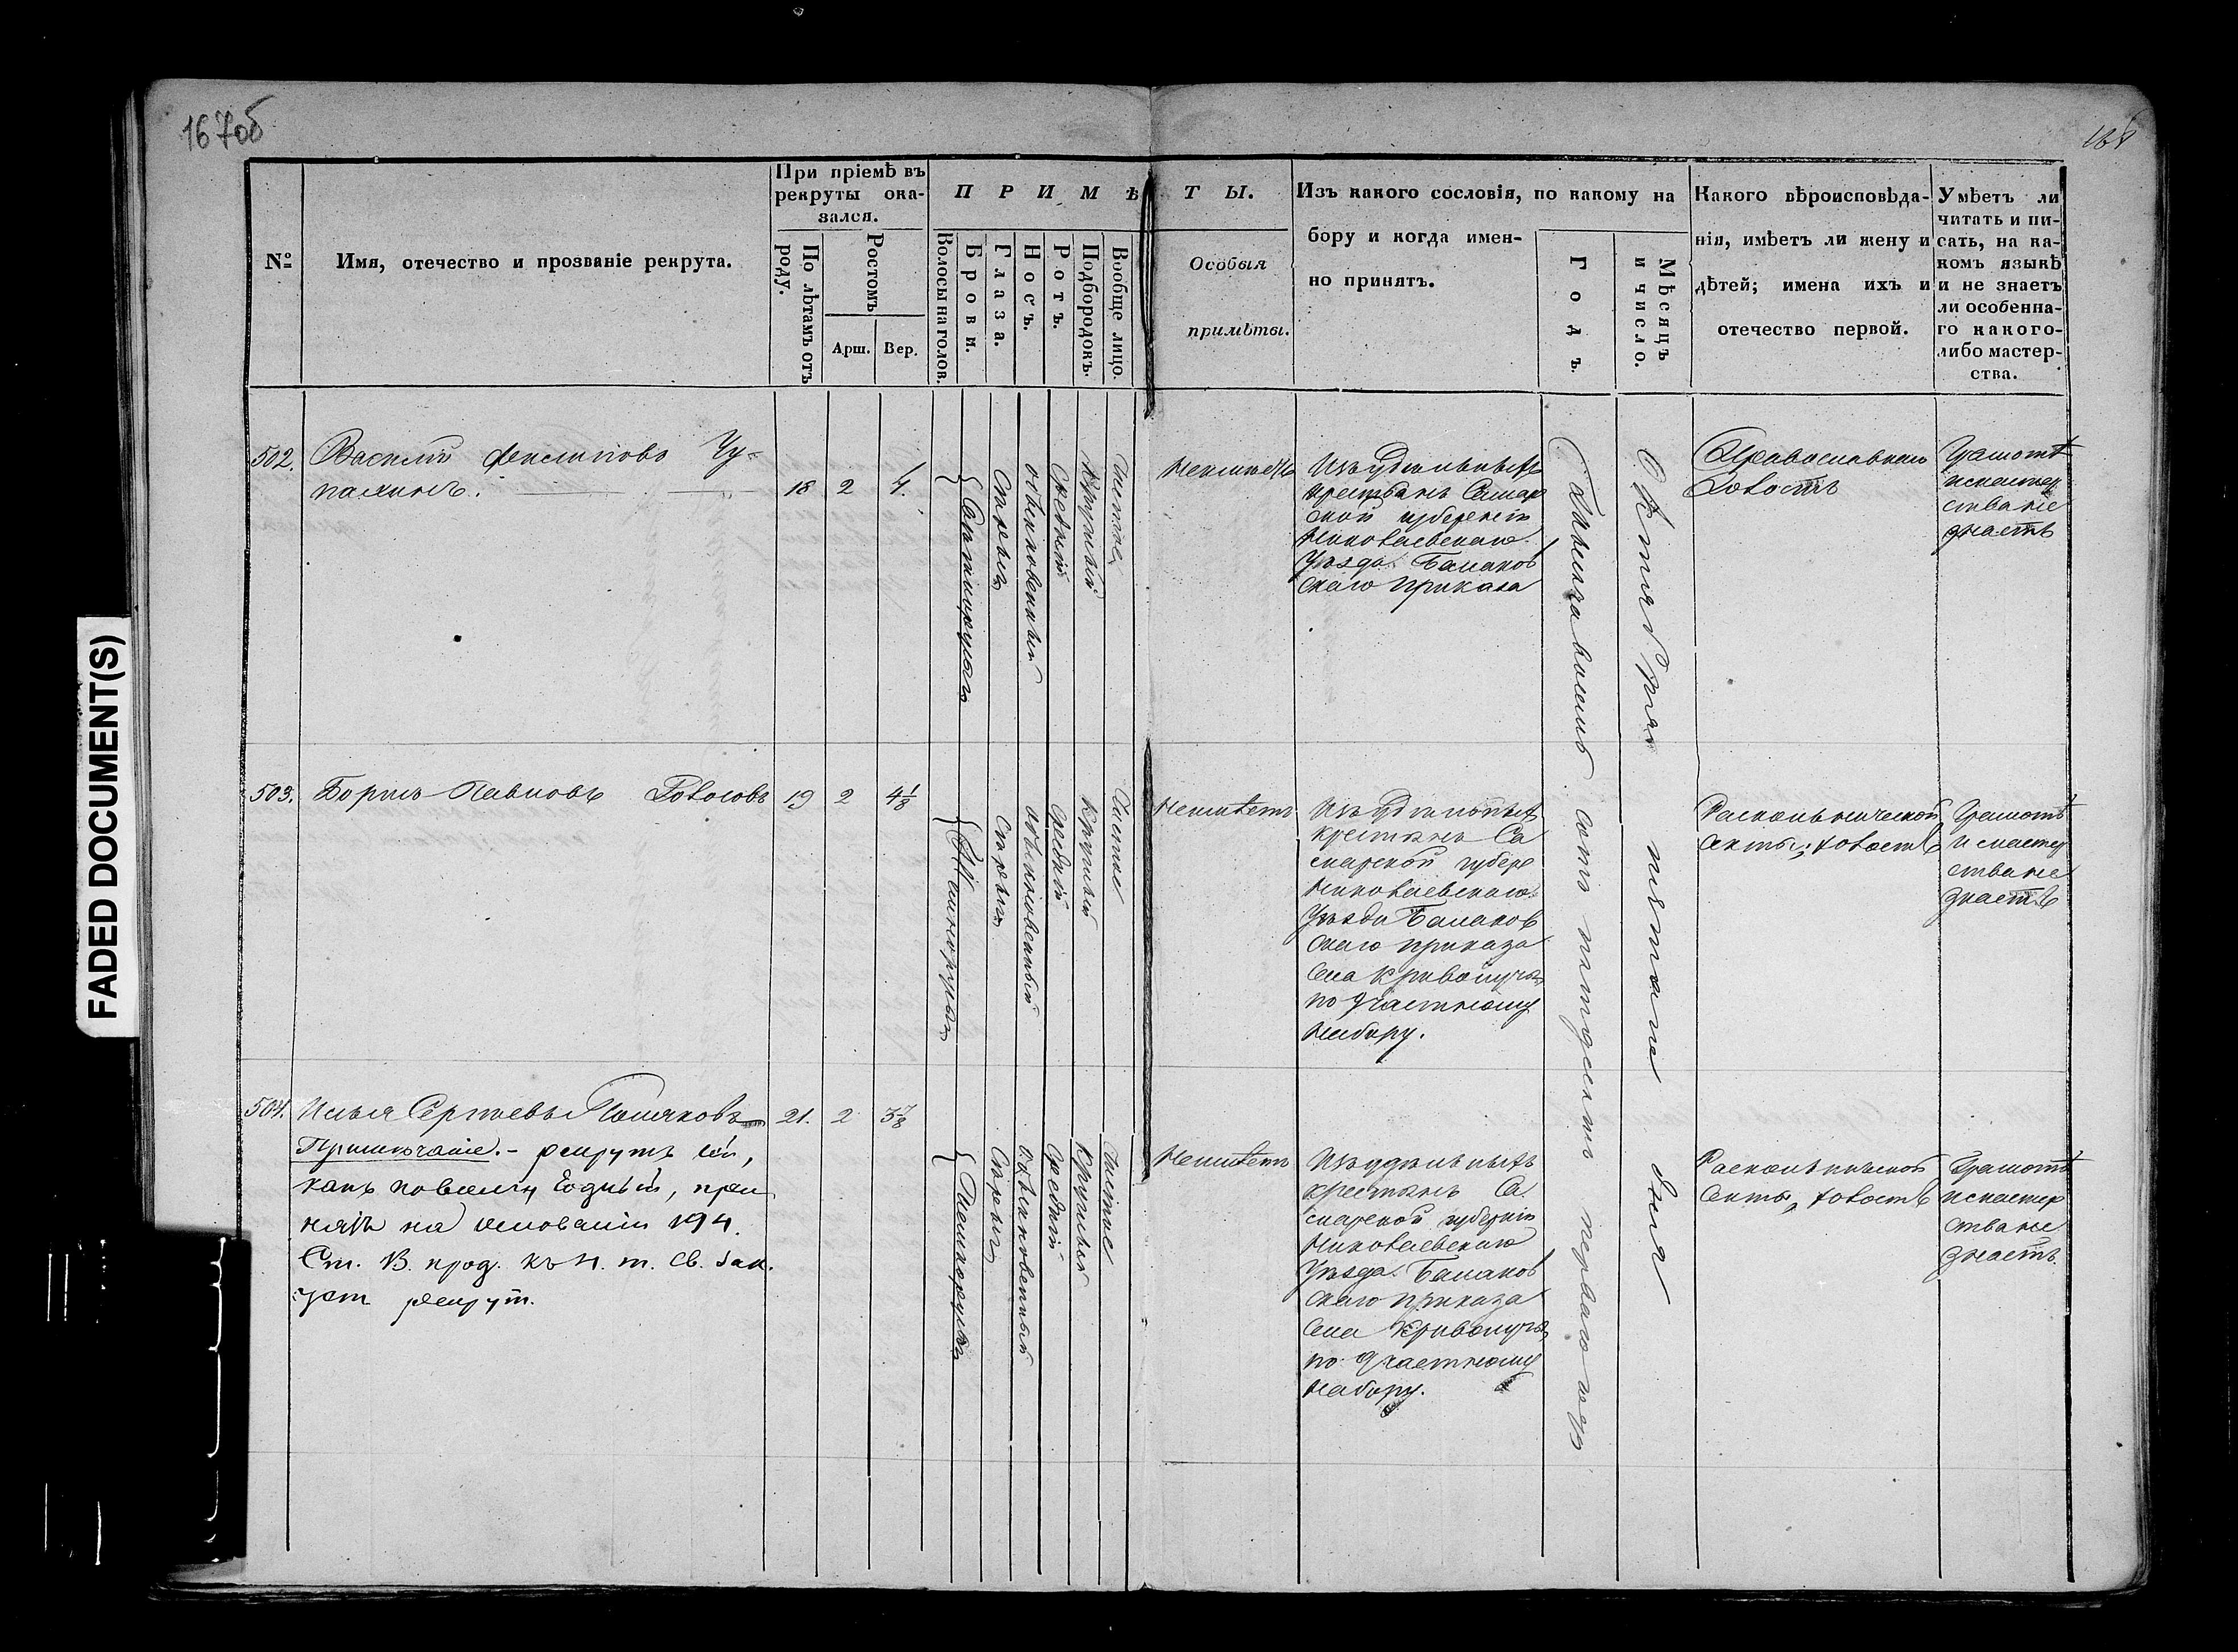 167об
168
FADED DOCUMENT(S)
№
Имя, отечество и прозваніе рекрута.
При пріемѣ въ
рекруты ока-
зался.
По лѣтамъ отъ
роду.
Ростомъ
Арш.
Вер.
ПРИМѢТЫ.
Волосы на голов.
Брови.
Глаза.
Носъ.
Ротъ.
Подбородокъ.
Вообще лицо.
Особыя
примѣты.
Изъ какого сословія, по какому на
бору и когда имен-
но принятъ.
Годъ.
Мѣсяцъ
и число.
Какого вѣроисповѣда-
нія, имѣетъ ли жену и
дѣтей; имена ихъ и
отечество первой.
Умѣетъ ли
читать и пи-
сать, на ка-
комъ языкѣ
и не знаетъ
ли особенна-
го какого-
либо мастер-
ства.
502.
Василій
18
2
4.
Свѣтлорусыя
Сѣрыя
обыкновенный
Средній
Круглый
Чистое
Неимѣетъ
Изъ удѣльныхъ
крестьянъ Самар
ской губерніи
Николаевскаго
Уѣзда Балаков
скаго приказа
Тысяча восемь сотъ пятдесятъ перваго года
Октября пятаго дня
Православнаго
Холостъ
Грамотѣ
и мастер
ства не
знаетъ
503.
Борисъ Павловъ
19
2
4 1/8
Свѣтлорусыя
Сѣрыя
Обыкновенный
Средній
Круглый
Чистое
Неимѣетъ
Изъ Удѣльныхъ
крестьянъ Са
марской губер
Николаевскаго
Уѣзда Балаков
скаго приказа
Села Криволучья
по Участному
набору.
Раскольнической
секты, холостъ
Грамотѣ
и мастер
ства не
знаетъ
504.
Илья Сергѣевъ Поляковъ
21.
2
3 7/8
Примѣчаніе. – рекрутъ сей,
какъ повсему годный, при
нятъ на основаніи 194.
Ст. В. прод. къ 4. т. Св. Зак.
уст рекрут.
Сѣрыя
Обыкновенный
Средній
Круглый
Чистое
Неимѣетъ
Изъ удѣльныхъ
крестьянъ Са
марской губерніи
Николаевскаго
Уѣзда Балаков
скаго приказа
Села Криволучья,
по Участному
набору.
Раскольнической
Секты, холостъ
Грамотѣ
и мастер
ства не
знаетъ